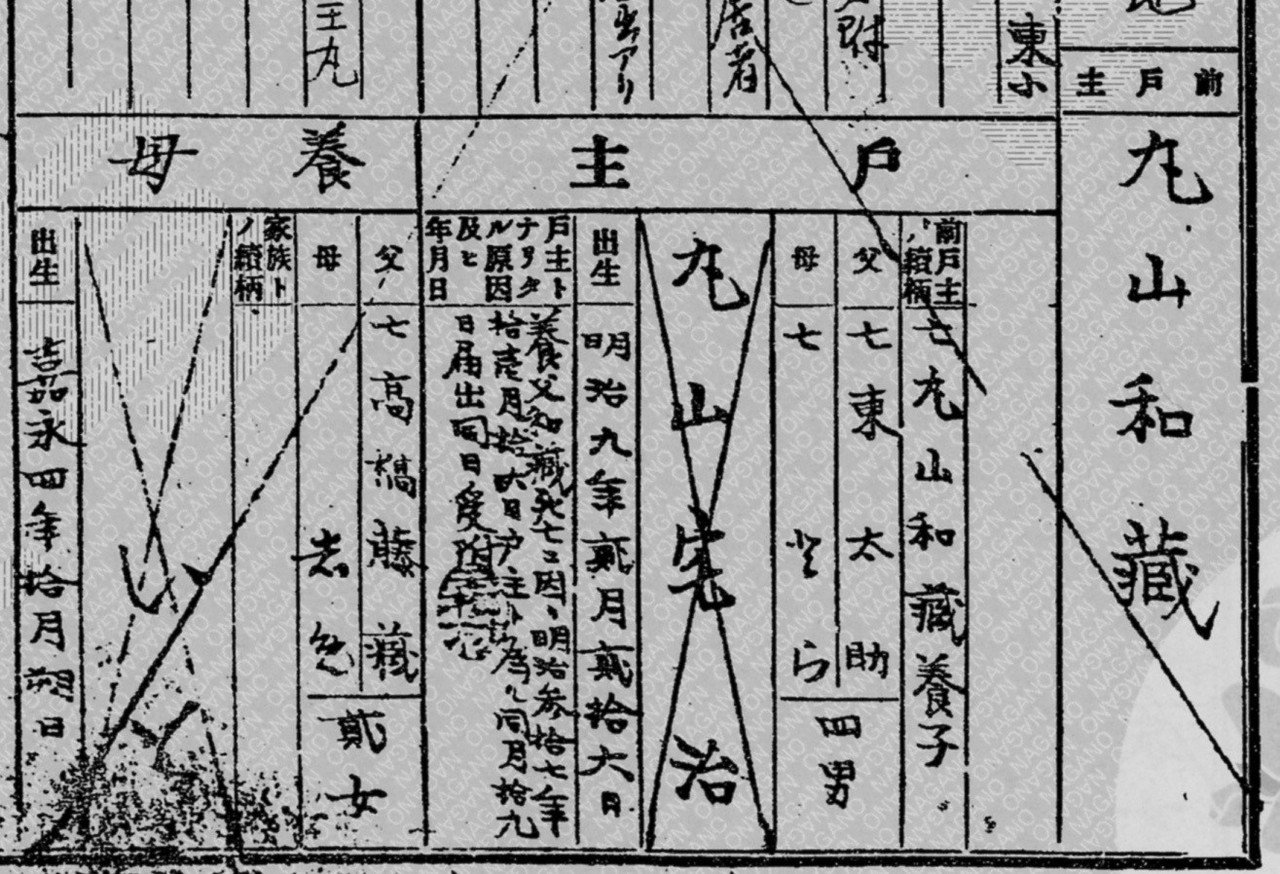 前戸主
丸山和藏
東小
居者
アリ
王丸
戸主
前戸主ノ續柄
亡丸山和藏養子
父
亡東太助
母
亡とら
四男
丸山宅治
出生
明治九年貳月貳拾六日
戸主トナリタル原因及ヒ年月日
養父和藏死亡ニ因リ明治参拾七年
拾壱月拾六日戸主ト為ル同月拾九
日届出同日受附
養母
父
亡高橋藤藏
母
貳女
家族トノ續柄
出生
嘉永四年拾月朔日